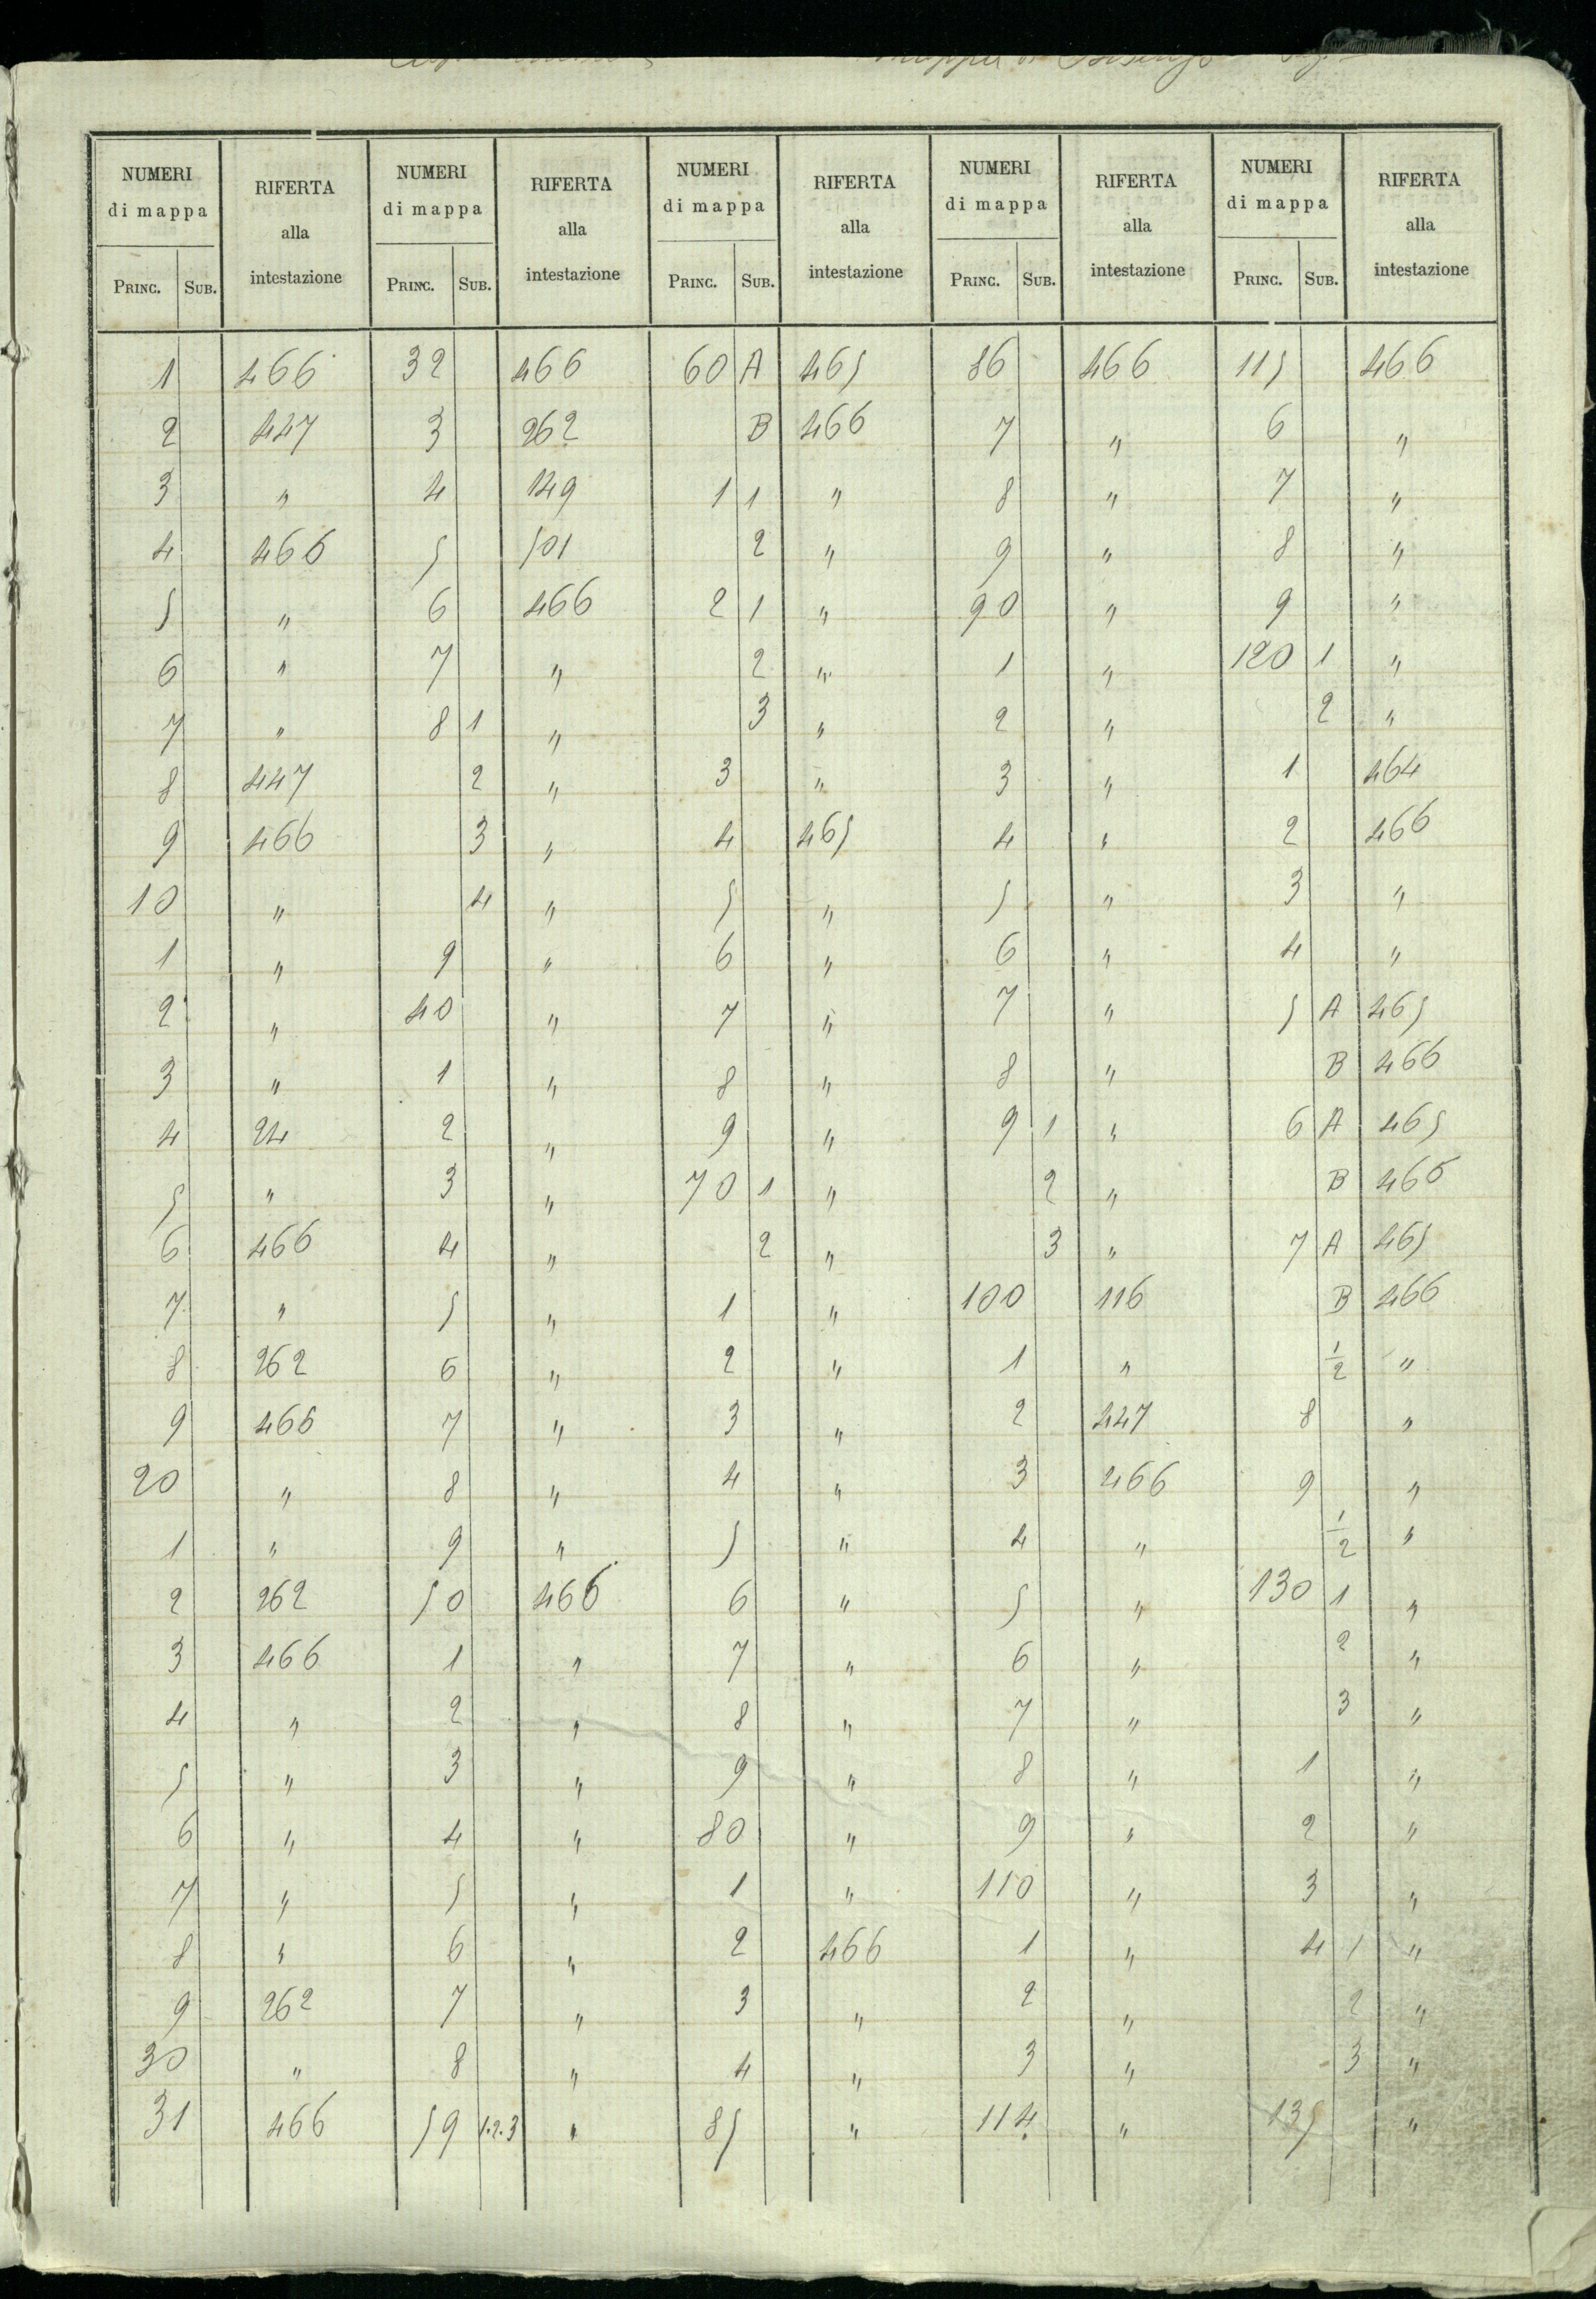 mappa di
NUMERI di mappa RIFERTA alla intestazione NUMERI di mappa RIFERTA alla intestazione NUMERI di mappa RIFERTA alla intestazione NUMERI di mappa RIFERTA alla intestazione NUMERI di mappa RIFERTA alla intestazione
PRINC. SUB. PRINC. SUB. PRINC. SUB. PRINC. SUB. PRINC. SUB.
1 466 32 466 60 A 465 86 466 115 466
2 447 3 262 B 466 7 " 6 "
3 " 4 149 1 1 " 8 " 7 "
4 466 5 501 2 " 9 " 8 "
5 " 6 466 2 1 " 90 " 9 "
6 " 7 " 2 " 1 " 120 1 "
7 " 8 1 " 3 " 2 " 2 "
8 447 2 " 3 " 3 " 1 464
9 466 3 " 4 465 4 " 2 466
10 " 4 " 5 " 5 " 3 "
1 " 9 " 6 " 6 " 4 "
2 " 40 " 7 " 7 " 5 A 465
3 " 1 " 8 " 8 " B 466
4 24 2 " 9 " 9 1 " 6 A 465
5 " 3 " 70 1 " 2 " B 466
6 466 4 " 2 " 3 " 7 A 465
7 " 5 " 1 " 100 116 B 466
8 262 6 " 2 " 1 " 1/2 "
9 466 7 " 3 " 2 447 8 "
20 " 8 " 4 " 3 466 9 "
1 " 9 " 5 " 4 " 1/2 "
2 262 50 466 6 " 5 " 130 1 "
3 466 1 " 7 " 6 " 2 "
4 " 2 " 8 " 7 " 3 "
5 " 3 " 9 " 8 " 1 "
6 " 4 " 80 " 9 " 2 "
7 " 5 " 1 " 110 " 3 "
8 " 6 " 2 466 1 " 4 1 "
9 262 7 " 3 " 2 " 2 "
30 " 8 " 4 " 3 " 3 "
31 466 59 1.2.3 " 85 " 114 " 135 "